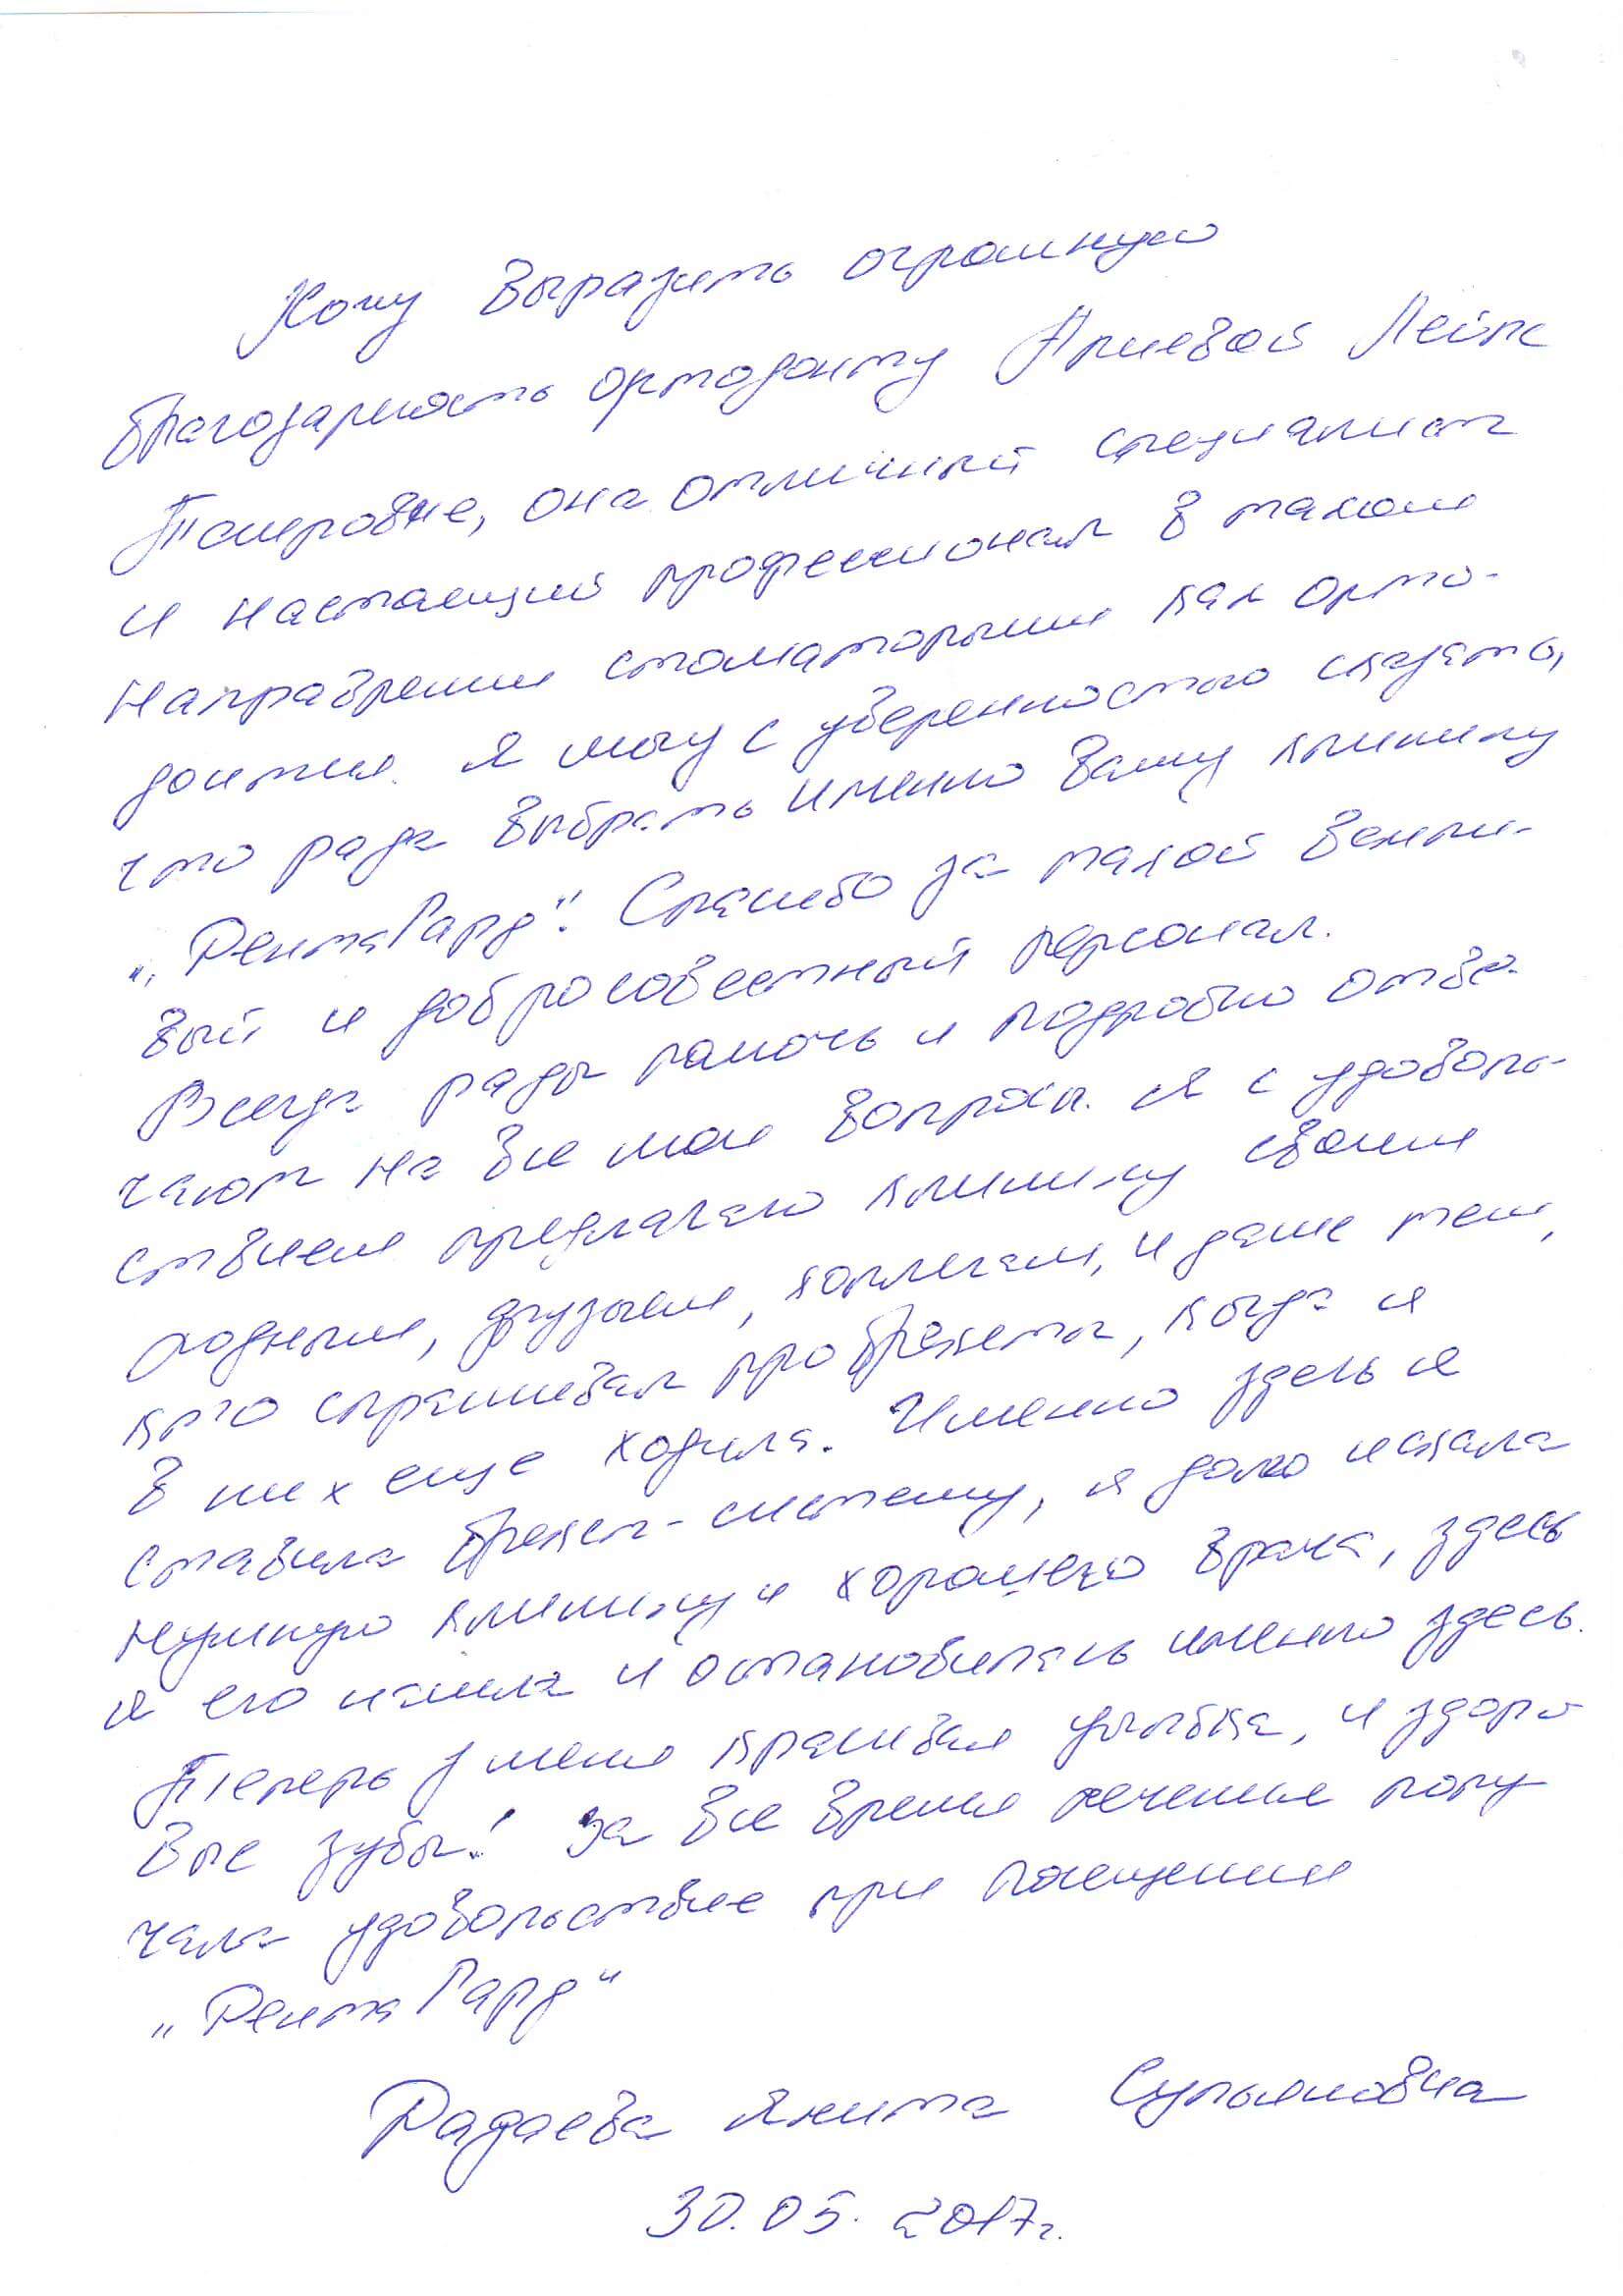 Хочу выразить огромную
благодарность ортодонту Алиевой Лейле
Таировне, она отличный специалист
и настоящий профессионал в таком
направлении стоматологии как орто-
донтия. Я могу с уверенностью сказать,
что рада выбрать именно Вашу клинику
„ДентаГард". Спасибо за такой вежли-
вый и добросовестный персонал.
Всегда рады помочь и подробно отве-
чают на все мои вопросы. Я с удоволь-
ствием предлагаю клинику своим
родным, друзьям, коллегам, и даже тем,
кто спрашивал про брекеты, когда я
в них еще ходила. Именно здесь я
ставила брекет-систему, я долго искала
нужную клинику и хорошего врача, здесь
я его нашла и остановилась именно здесь.
Теперь у меня красивая улыбка, и здоро
вые зубы! За все время лечения полу
чала удовольствие при посещении
„Дента Гард"
Радаева Сульяновна
30.05.2017г.